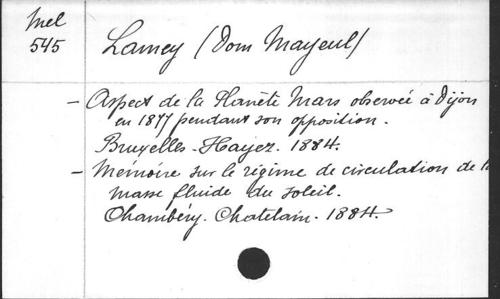 Mel
545
Lamey (Dom Mayeul)
- Aspect de la Planète Mars observée à Dijon
en 1877 pendant son opposition.
Bruxelles. Hayez. 1884.
- Mémoire sur le régime de circulation de la
masse fluide du soleil.
Chambéry. Chatelain. 1884.